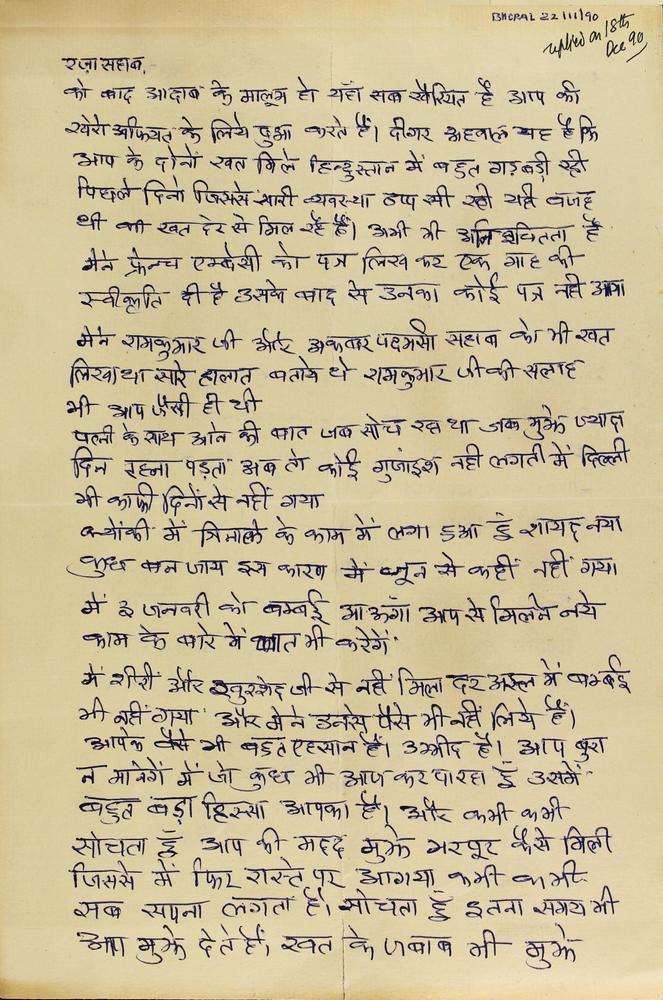 BHOPAL 22/11/90
replied on 18th
Dec 90
रज़ा सहाब,
को बाद आदाब के मालूम हो यहाँ सब खैरियत है आप की
खेरो आफियत के लिये दुआ करते हैं। दीगर अहवाल यह है कि
आप के दोनों खत मिले हिन्दुस्तान में बहुत गड़बड़ी रही
पिछले दिनों जिससे सारी व्यवस्था ठप सी रही यही वजह
थी की खत देर से मिल रहे हैं। अभी भी अनिश्चितता है
मेने फ्रेन्च एम्बेसी को पत्र लिख कर एक माह की
स्वीकृति दी है उसके बाद से उनका कोई पत्र नहीं आया
मेने रामकुमार जी और अकबर पदमसी सहाब को भी खत
लिखा था सारे हालात बताये थे रामकुमार जी की सलाह
भी आप जैसी ही थी
पत्नी के साथ आने की बात जब सोच रहा था जब मुझे ज्यादा
दिन रहना पड़ता अब तो कोई गुजांइश नहीं लगती में दिल्ली
भी काफी दिनों से नहीं गया
क्योंकी में त्रिनाले के काम में लगा हुआ हूं शायद नया
कुछ बन जाय इस कारण में जून से कहीं नहीं गया
में 3 जनवरी को बम्बई आऊँगा आप से मिलने नये
काम के बारे में बात भी करेगें
में शीरीं और खुरशेद जी से नहीं मिला दर असल में बम्बई
भी नहीं गया और मेने उनसे पैसे भी नहीं लिये हैं।
आपके वैसे भी बहुत एहसान हैं। उम्मीद है। आप बुरा
न मानेगें में जो कुछ भी आप कर पा रहा हूं उसमें
बहुत बड़ा हिस्सा आपका है। और कभी कभी
सोचता हूँ आप की मदद मुझे भरपूर कैसे मिली
जिससे में फिर रास्ते पर आगया कभी कभी
सब सपना लगता है। सोचता हूं इतना समय भी
आप मुझे देते हैं, खत के जबाब भी मुझे